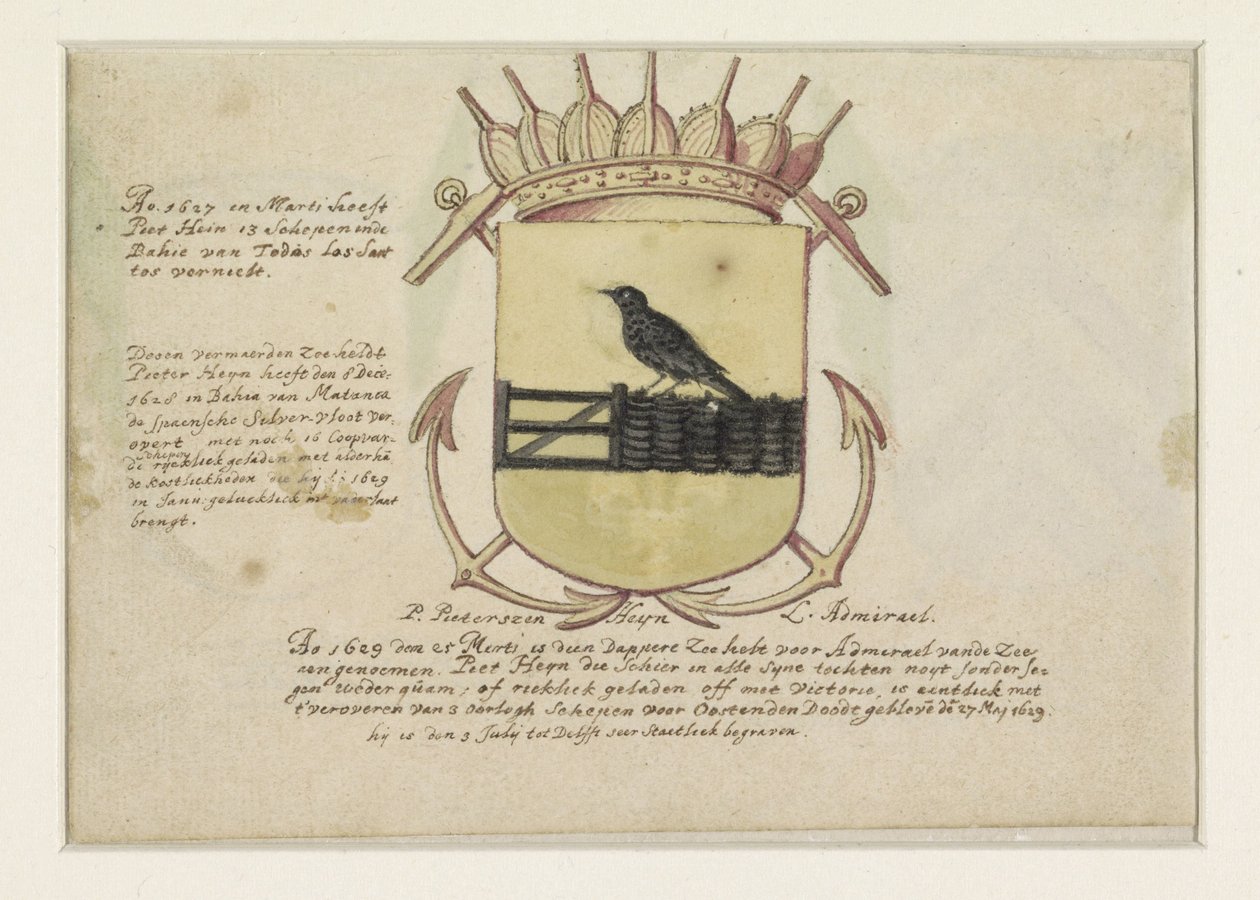 Ao. 1627 en Marti heeft
Piet Hein 13 Schepen inde
Bahie van Todos los Sant
tos vernielt.
Desen vermaerden Zee heldt
Pieter Heyn heeft den 8 Dece:
1628 in Bahia van Matanca
de Spaensche Silver-vloot ver:
overt met noch 16 Coopvar-
de schepen rijckliek geladen met alderhā
de kostlickheden die hij 1629
in Janu: geluckliek int vaderlant
brengt.
P. Pieterszen Heyn L. Admirael.
Ao 1629 den 25 Merti is dien Dappere Zee helt voor Admirael vande Zee
aengenoemen. Piet Heyn die Schier in alle syne tochten noyt sonder se-
gen wederquam; of rickliek geladen off met victorie, is eintliek met
t'veroveren van 3 oorlogh Schepen voor Oostenden Doodt geblevē dē 27 Maj 1629.
hij is den 3 Julij tot Delfft seer Staetliek begraven.